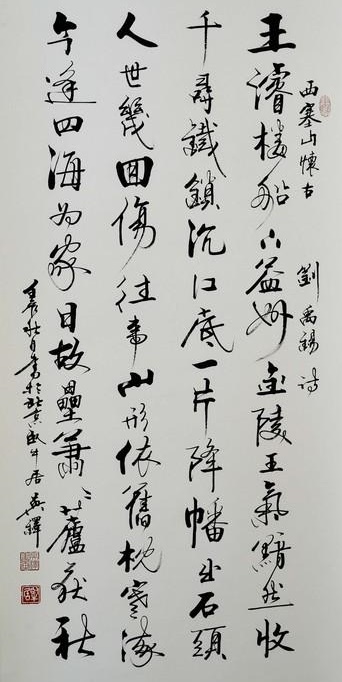 西塞山懷古 劉禹錫詩
王濬楼船下益州金陵王氣黯然收
千尋鐵鎖沉江底一片降幡出石頭
人世幾回傷往事山形依舊枕寒流
今逢四海為家日故壘蕭〻蘆荻秋
壬辰秋月書於北京